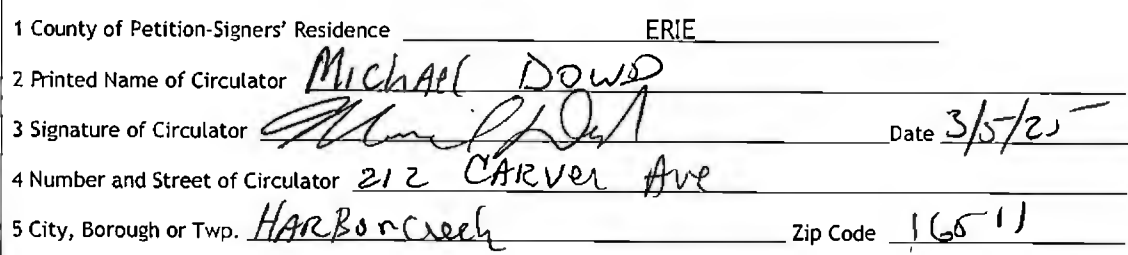 1 County of Petition-Signers' Residence ERIE
2 Printed Name of Circulator Michael Dowd
3 Signature of Circulator Date 3/5/25
4 Number and Street of Circulator 212 CARVer Ave
5 City, Borough or Twp. HARBorCreek Zip Code 16511